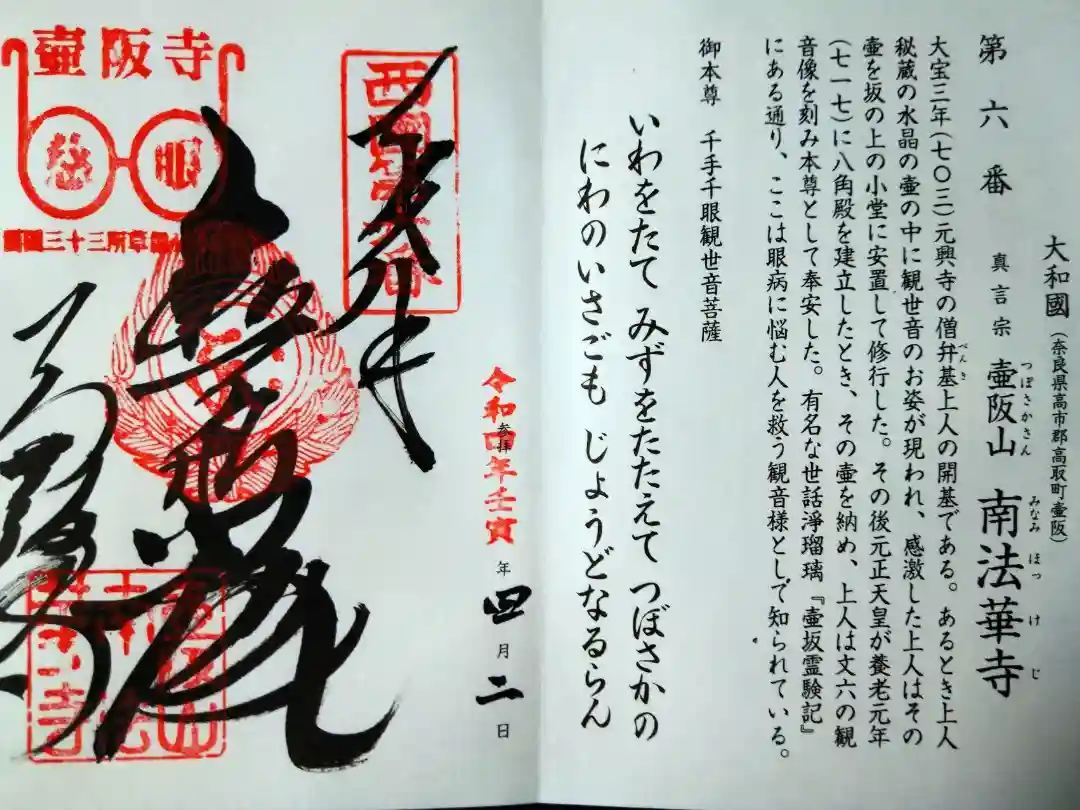 第六番
大和國(奈良県高市郡高取町壷阪)
真言宗 壷阪山 南法華寺
つぼさかさん
みなみほっけじ
大宝三年(七〇三)元興寺の僧弁基上人の開基である。あるとき上人
べんき
秘蔵の水晶の壷の中に観世音のお姿が現われ、感激した上人はその
壷を坂の上の小堂に安置して修行した。その後元正天皇が養老元年
(七一七)に八角殿を建立したとき、その壷を納め、上人は丈六の観
音像を刻み本尊として奉安した。有名な世話淨瑠璃『壷坂霊験記』
にある通り、ここは眼病に悩む人を救う観音様としで知られている。
御本尊 千手千眼観世音菩薩
いわをたて みずをたたえて つぼさかの
にわのいさごも じょうどなるらん
令和四年壬寅年四月二日
参拝
壷阪寺
眼
慈